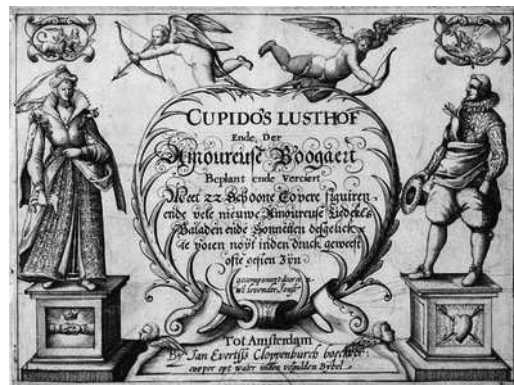 CUPIDO'S LUSTHOF
Ende Der
Amoureuse Boogaert
Beplant ende Verciert
Meet 22 Schoone Covere figuiren
ende vele nieuwe Amoureuse Liedekēs
Baladen ende Sonnetten desgelickx
te voren noÿt inden druck geweest
ofte gesien Zÿn
gecomponeert door
Tot Amsterdam
By Jan Evertss Cloppenburch boeckver
over opt water inden vergulden Bybel